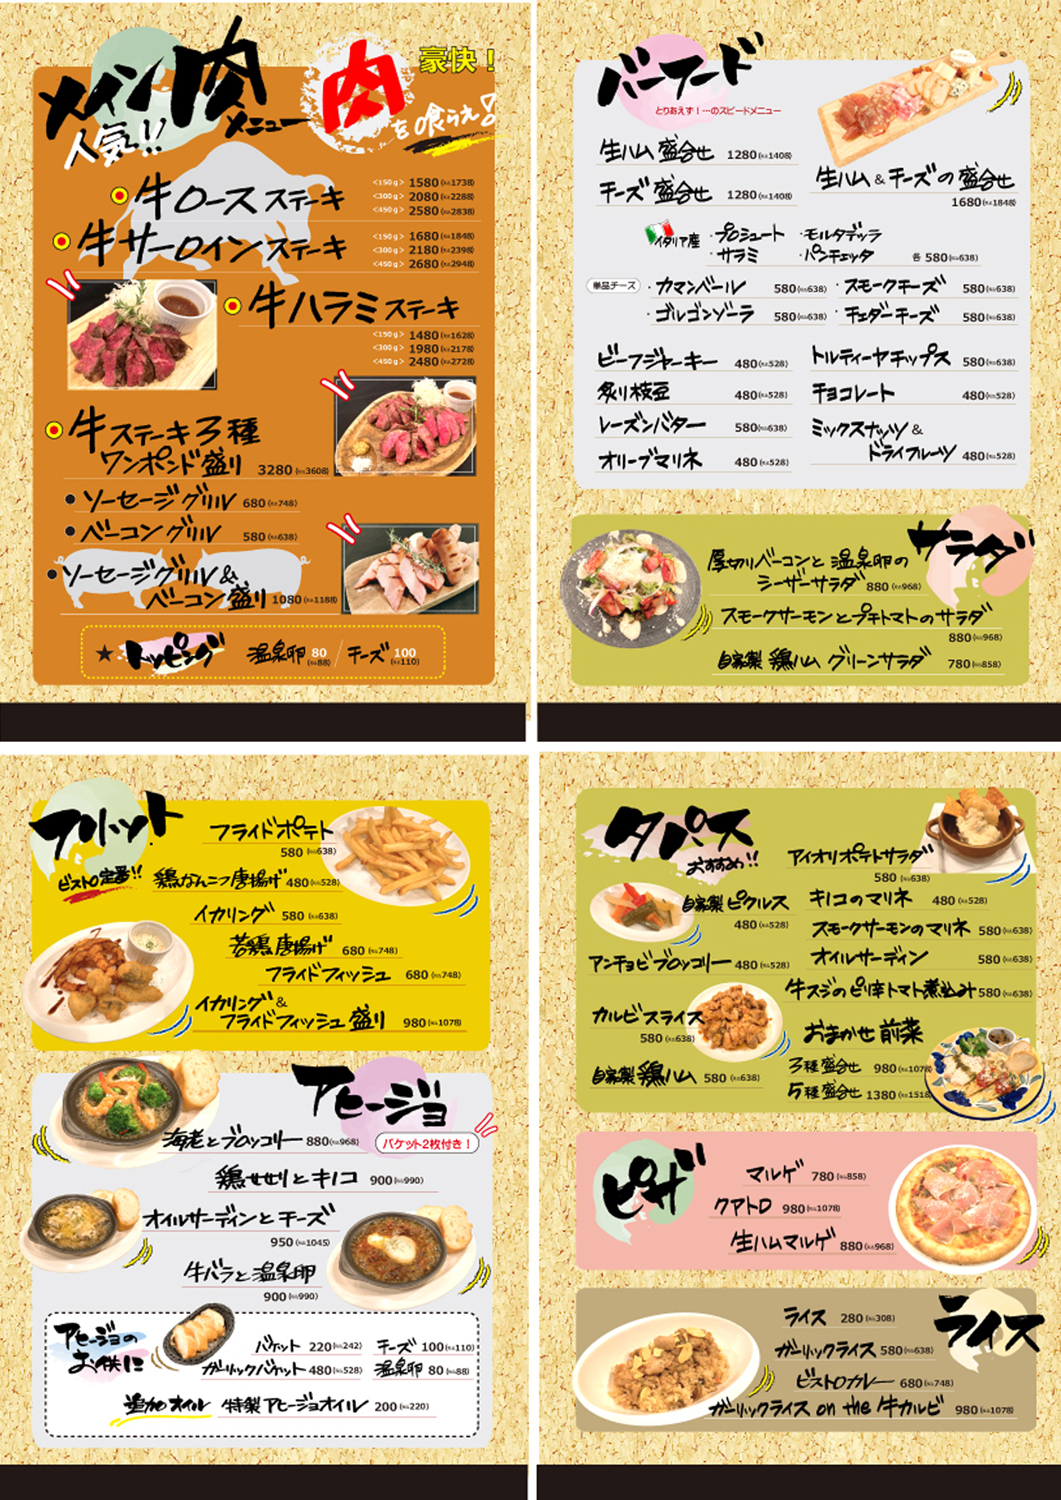 メイン肉メニュー
人気!!
豪快!
肉を喰らえ!
牛ロースステーキ
<150g> 1580(税込1738)
<300g> 2080(税込2288)
<450g> 2580(税込2838)
牛サーロインステーキ
<150g> 1680(税込1848)
<300g> 2180(税込2398)
<450g> 2680(税込2948)
牛ハラミステーキ
<150g> 1480(税込1628)
<300g> 1980(税込2178)
<450g> 2480(税込2728)
牛ステーキ3種
ワンポンド盛り 3280(税込3608)
ソーセージグリル 680(税込748)
ベーコングリル 580(税込638)
ソーセージグリル&
ベーコン盛り 1080(税込1188)
★トッピング 温泉卵 80(税込88) / チーズ 100(税込110)
バーフード
とりあえず!…のスピードメニュー
生ハム盛合せ 1280(税込1408)
チーズ盛合せ 1280(税込1408)
生ハム&チーズの盛合せ
1680(税込1848)
イタリア産 ・プロシュート ・モルタデッラ
・サラミ ・パンチェッタ 各580(税込638)
単品チーズ ・カマンベール 580(税込638) ・スモークチーズ 580(税込638)
・ゴルゴンゾーラ 580(税込638) ・チェダーチーズ 580(税込638)
ビーフジャーキー 480(税込528)
トルティーヤチップス 580(税込638)
炙り枝豆 480(税込528)
チョコレート 480(税込528)
レーズンバター 580(税込638)
ミックスナッツ&
ドライフルーツ 480(税込528)
オリーブマリネ 480(税込528)
サラダ
厚切りベーコンと温泉卵の
シーザーサラダ 880(税込968)
スモークサーモンとプチトマトのサラダ
880(税込968)
自家製鶏ハムグリーンサラダ 780(税込858)
フリット
ビストロ定番!!
フライドポテト
580(税込638)
鶏なんこつ唐揚げ 480(税込528)
イカリング 580(税込638)
若鶏唐揚げ 680(税込748)
フライドフィッシュ 680(税込748)
イカリング&
フライドフィッシュ盛り 980(税込1078)
アヒージョ
バケット2枚付き!
海老とブロッコリー 880(税込968)
鶏せせりとキノコ 900(税込990)
オイルサーディンとチーズ
950(税込1045)
牛バラと温泉卵
900(税込990)
アヒージョの
お供に
バケット 220(税込242) チーズ 100(税込110)
ガーリックバケット 480(税込528) 温泉卵 80(税込88)
追加オイル 特製アヒージョオイル 200(税込220)
タパス
おすすめ!!
アイオリポテトサラダ
580(税込638)
自家製ピクルス
480(税込528)
キノコのマリネ 480(税込528)
スモークサーモンのマリネ 580(税込638)
アンチョビブロッコリー 480(税込528)
オイルサーディン 580(税込638)
牛スジのピリ辛トマト煮込み 580(税込638)
カルビスライス
580(税込638)
おまかせ前菜
3種盛合せ 980(税込1078)
5種盛合せ 1380(税込1518)
自家製鶏ハム 580(税込638)
ピザ
マルゲ 780(税込858)
クアトロ 980(税込1078)
生ハムマルゲ 880(税込968)
ライス
ライス 280(税込308)
ガーリックライス 580(税込638)
ビストロカレー 680(税込748)
ガーリックライス on the 牛カルビ 980(税込1078)